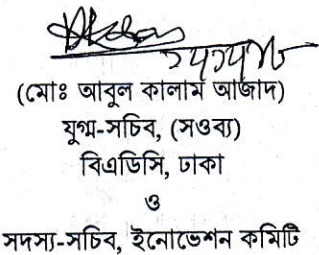 (মোঃ আবুল কালাম আজাদ)
যুগ্ম-সচিব, (সওব্য)
বিএডিসি, ঢাকা
ও
সদস্য-সচিব, ইনোভেশন কমিটি